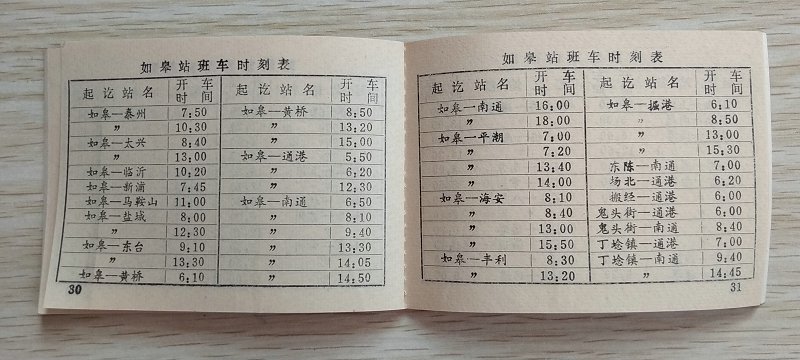 如皋站班车时刻表
起讫站名 开车时间 起讫站名 开车时间
如皋—泰州 7:50 如皋—黄桥 8:50
〃 10:30 〃 13:20
如皋—大兴 8:40 〃 15:00
〃 13:00 如皋—通港 5:50
如皋—临沂 10:20 〃 6:20
如皋—新浦 7:45 〃 12:30
如皋—马鞍山 11:00 如皋—南通 6:50
如皋—盐城 8:00 〃 8:10
〃 12:30 〃 9:40
如皋—东台 9:10 〃 13:30
〃 13:30 〃 14:05
如皋—黄桥 6:10 〃 14:50
30
如皋站班车时刻表
起讫站名 开车时间 起讫站名 开车时间
如皋—南通 16:00 如皋—掘港 6:10
〃 18:00 〃 8:50
如皋—平潮 7:00 〃 13:00
〃 7:20 〃 15:30
〃 13:40 东陈—南通 7:00
〃 14:00 场北—通港 6:20
如皋—海安 8:10 搬经—通港 6:00
〃 8:40 鬼头街—通港 6:00
〃 13:00 鬼头街—南通 8:40
〃 15:50 丁埝镇—通港 7:00
如皋—丰利 8:30 丁埝镇—南通 9:40
〃 13:20 〃 14:45
31